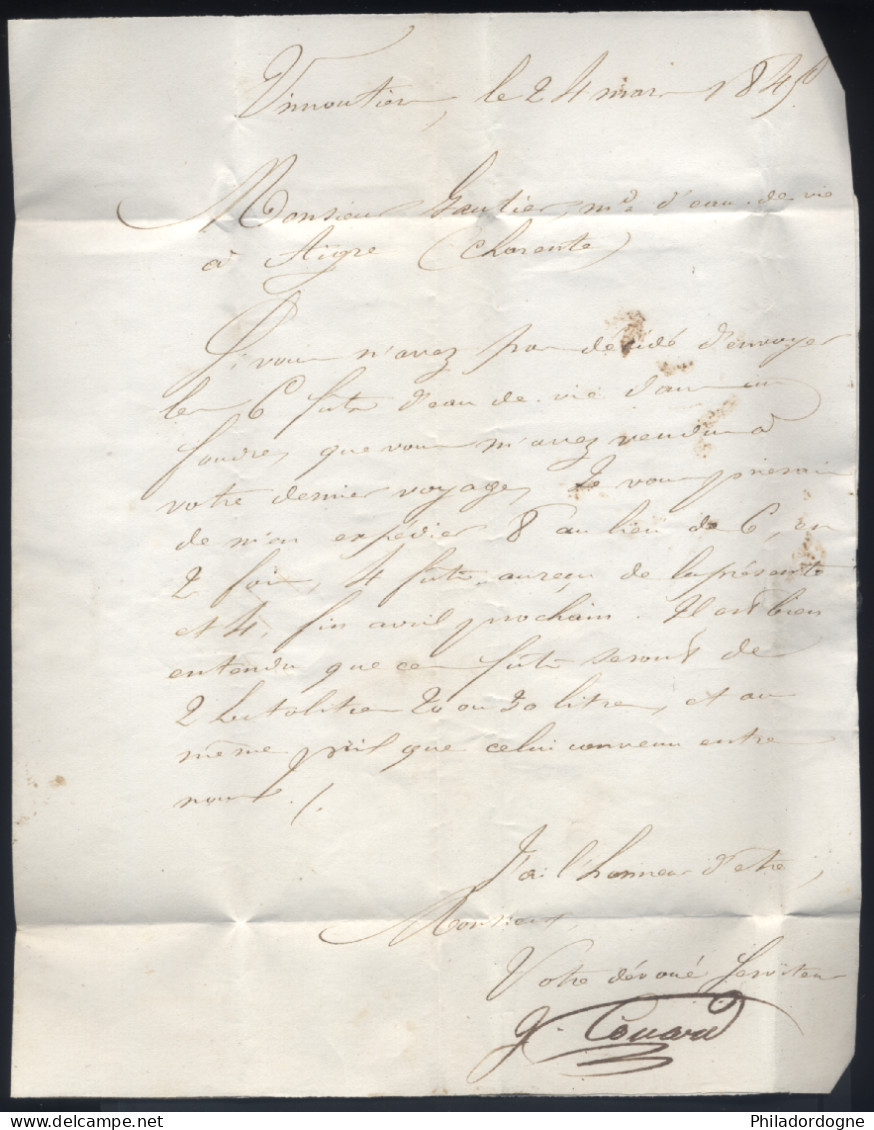 Vimoutiers, le 24 mars 184
Monsieur Gautier, md d'eau-de-vie
à Aigre (Charente)
Si vous n'avez pas décidé d'envoyer
les 6 fûts d'eau-de-vie dans un
foudre, que vous m'avez vendu à
votre dernier voyage, Je vous prierai
de m'en expédier 8 au lieu de 6, en
2 fois, 4 fûts, au reçu de la présente
et 4, fin avril prochain. Il est bien
entendu que ces fûts seront de
2 hectolitres 20 ou 30 litres, et au
même prix que celui convenu entre
nous./.
J'ai l'honneur d'être,
Monsieur,
Votre dévoué Serviteur
Couard
Philadordogne